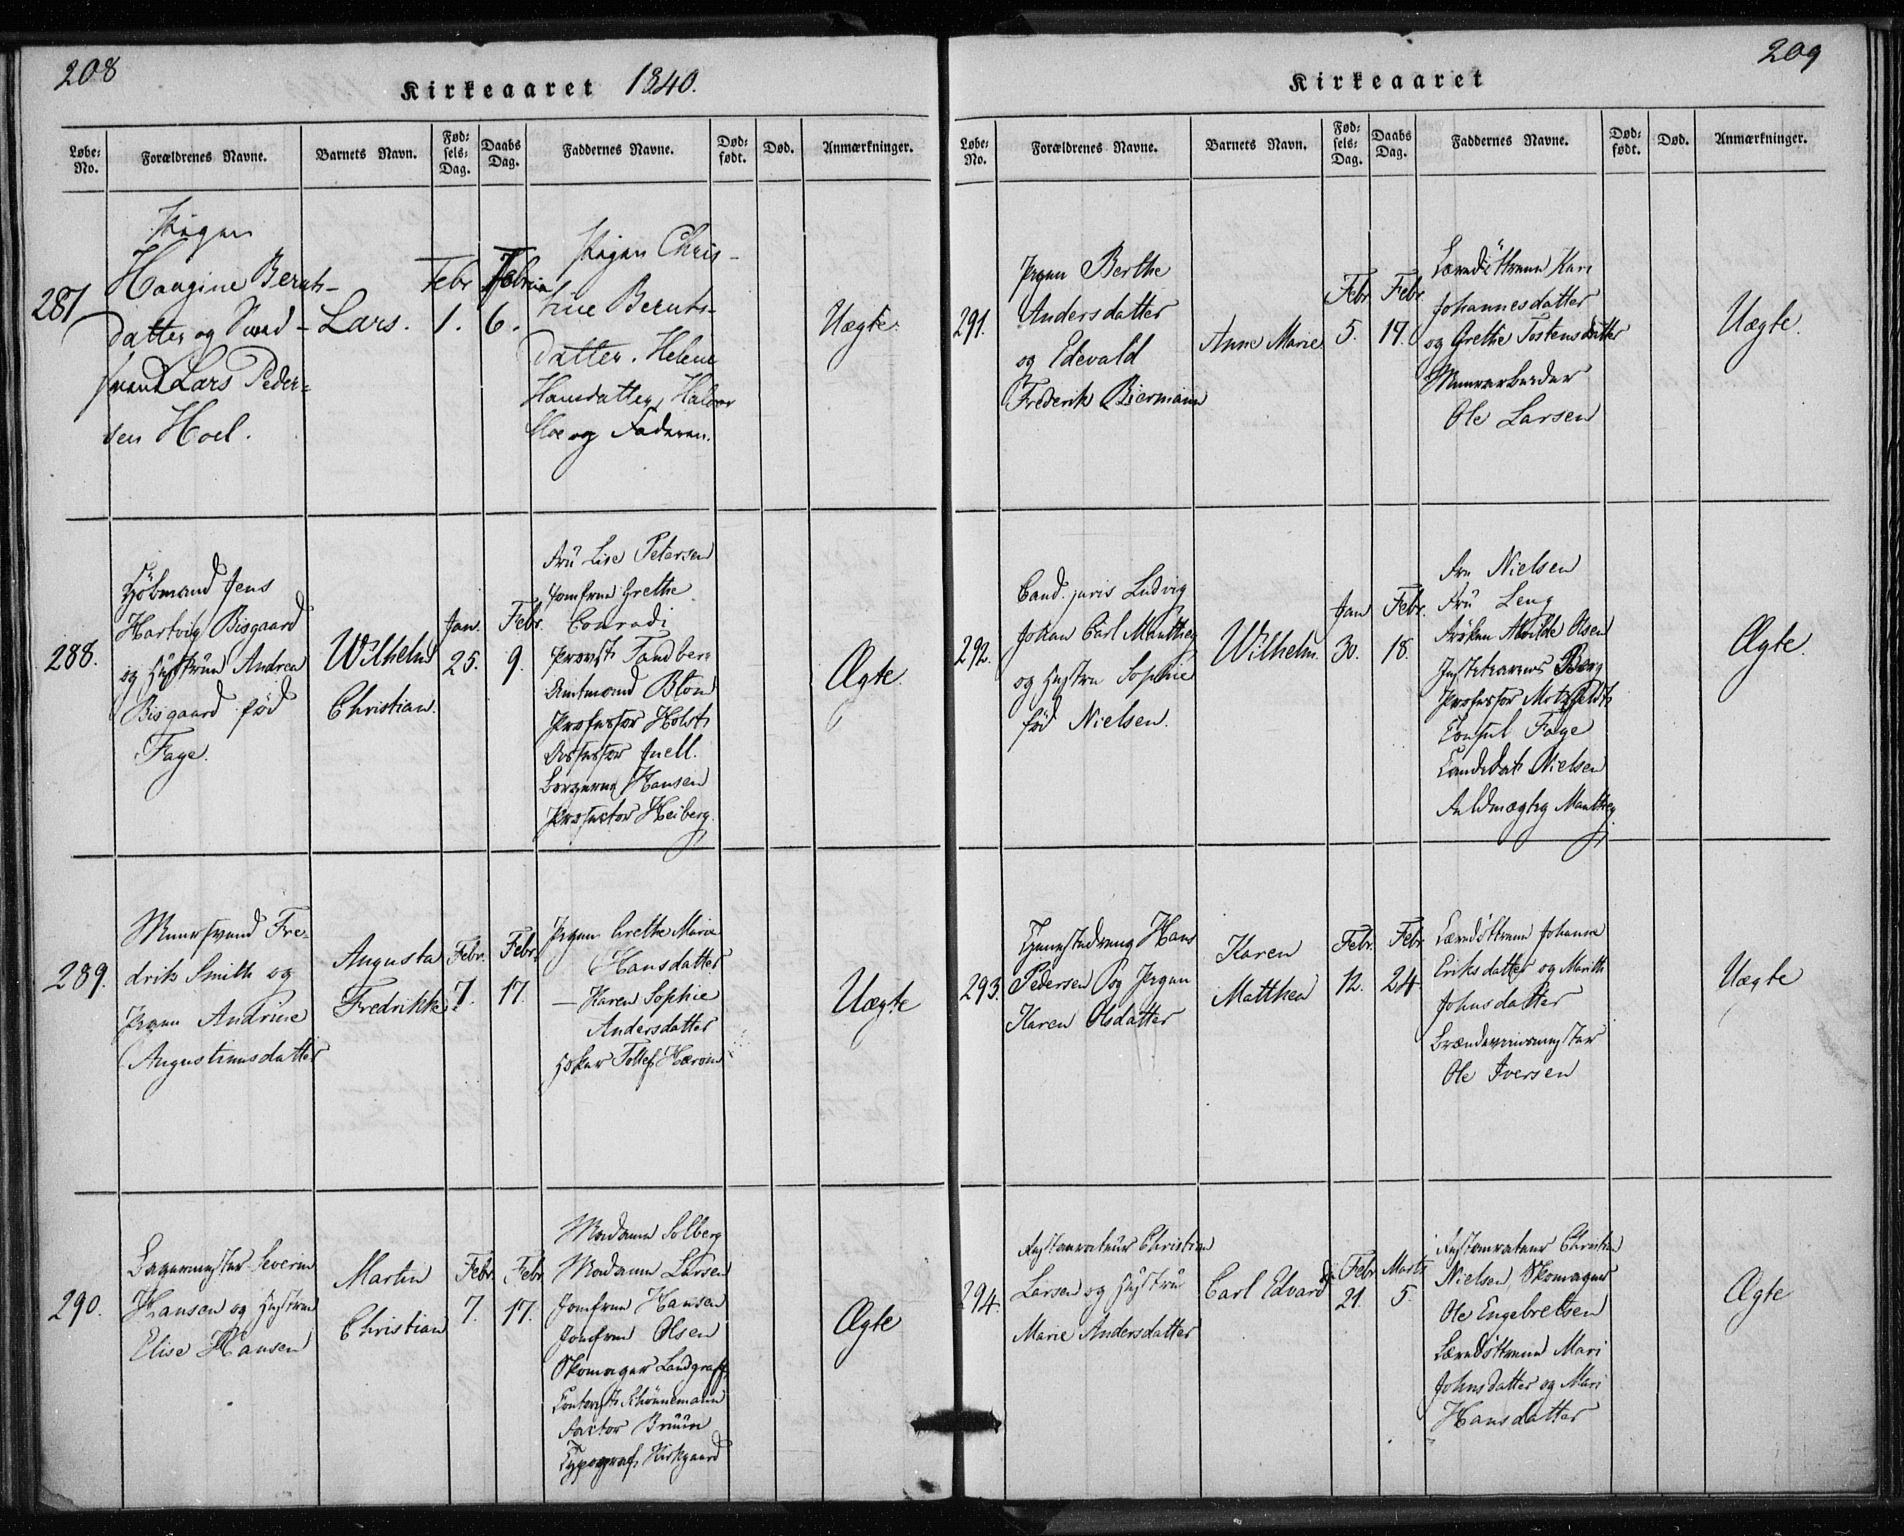 208
Kirkeaaret 1840.
Løbe-No.
Forældrenes Navne.
Barnets Navn.
Fød-sels-Dag.
Daabs Dag.
Faddernes Navne.
Død-født.
Død.
Anmærkninger.
287
Pigen
Haagine Bernts-
datter og
Lars Peder-
sen Hoel.
Lars.
Febr
1.
6.
Pigen Chris-
tine Bernts-
datter. Helene
Hansdatter, Halvor
Moe og Faderen.
Uægte.
288.
Jens
Hartvig Bisgaard
og Hustrue Andrea
Bisgaard född
Faye.
Wilhelm
Christian.
Jan.
25.
Febr.
9.
Fru Lise Petersen
Jomfrue Grethe
Conradi
Provst Tandberg
Amtmand Blom
Professor Holst
Assessor Juell.
Hansen
Prosector Heiberg.
Ægte
289.
Muursvend Fre-
drik Smith og
Pigen Andrine
Augustinusdatter
Augusta
Fredrikke
Febr.
7.
Febr.
17.
Pigen Grethe Marie
Hansdatter
— Karen Sophie
Andersdatter
Tollef
Uægte
290.
Bagermester Severin
Hansen og Hustrue
Elise Hansen
Martin
Christian
Febr.
7.
Febr.
17.
Madame Solberg
Madame Larsen
Jomfrue Hansen
Jomfrue Olsen
Skomager Landgraff
Schönnemann
Factor Bruun
Typograf Kirkgaard
Ægte
209
Kirkeaaret
Løbe-No.
Forældrenes Navne.
Barnets Navn.
Fød-sels-Dag.
Daabs Dag.
Faddernes Navne.
Død-født.
Død.
Anmærkninger.
291.
Pigen Berthe
Andersdatter
og Edevald
Frederik Biermann
Anne Marie
Febr.
5.
Febr.
19.
Kari
Johannesdatter
og Grethe Tostensdatter
Muurarbeider
Ole Larsen
Uægte.
292.
Cand. juris Ludvig
Johan Carl Manthey
og Hustru Sophie
föd Nielsen.
Wilhelm.
Jan
30.
Febr.
18.
Fru Nielsen
Frü Leng
Frøken Alvilde Olsen
Berg
Professor Motzfeldt
Consul Faye
Candidat Nielsen
Fuldmægtig Manthey
Ægte.
293.
Tjenestedreng Hans
Pedersen og Pigen
Karen Olsdatter
Karen
Matthea
Febr.
12.
Febr
24.
Johanna
Eriksdatter og Marith
Johnsdatter
Brændeviinsmester
Ole Iversen
Uægte
294.
Restaurateur Christian
Larsen og Hustru
Marie Andersdatter
Carl Edvard
Febr.
21.
Marts
5.
Restaurateur Christian
Nielsen, Skomager
Ole Engebretsen
Mari
Johnsdatter og Mari
Hansdatter
Ægte